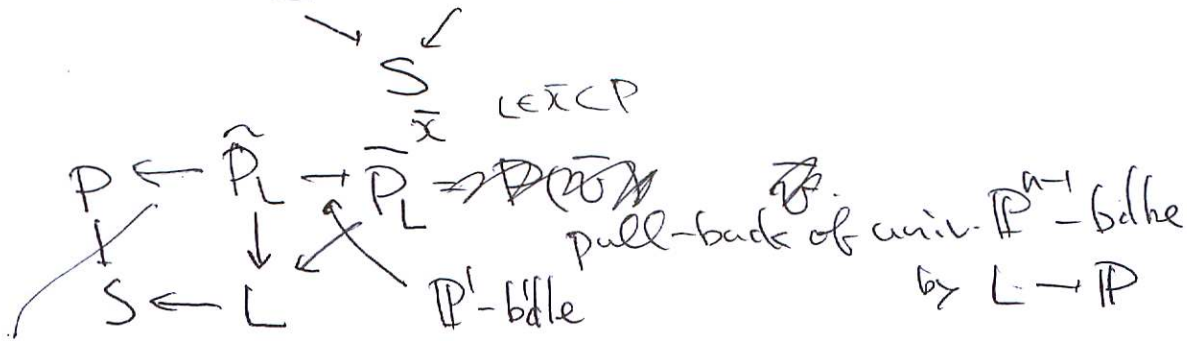 S
x̄ L∈x̄⊂P
P ← P̃_L → P̄_L
pull-back of univ. ℙ^{n-1}-bdle
by L → ℙ
S ← L
ℙ¹-bdle